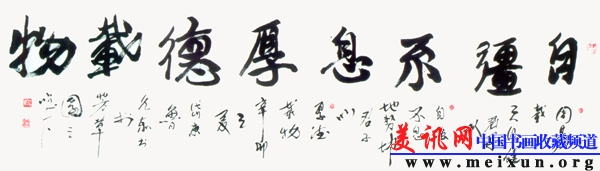 自彊不息厚德載物
周易
載
天行健
君子以
自彊
不息
地勢坤
君子
以
厚德
載物
辛卯
之
夏
於
芳草
園
美讯网 中国书画收藏频道
www.meixun.org